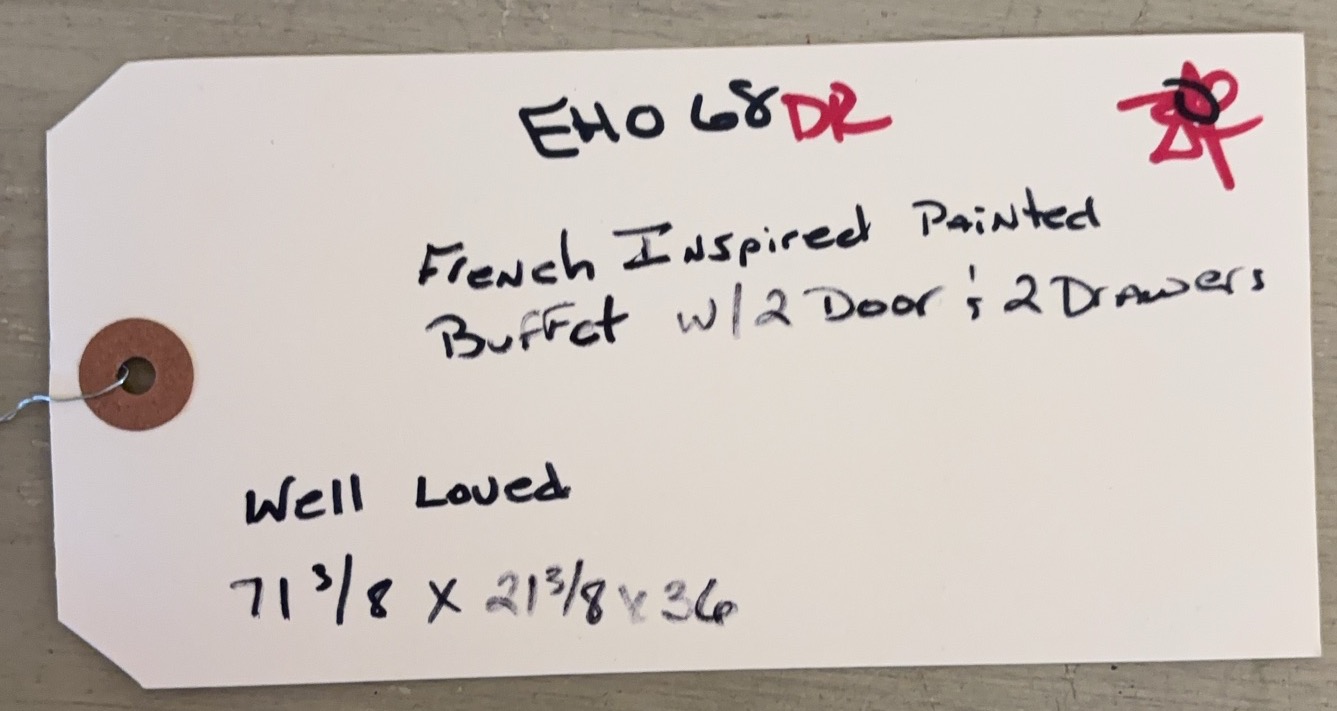 EHO 68 DR
French Inspired Painted
Buffet w/2 Door & 2 Drawers
Well Loved
71 3/8 x 21 3/8 x 36